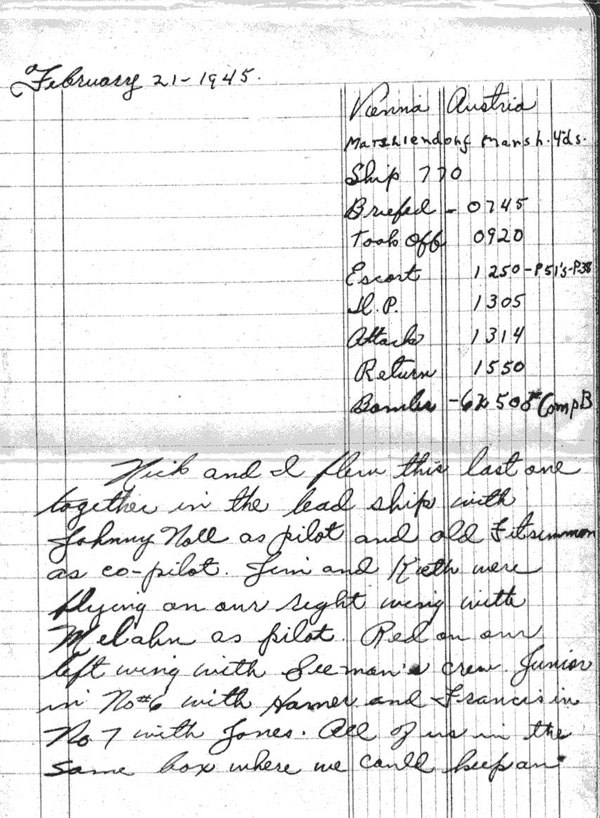 February 21-1945.
Vienna Austria
Marsh. Yds.
Ship 770
Briefed - 0745
Took Off 0920
Escort 1250-P51's-P38
I.P. 1305
Attack 1314
Return 1550
Bombs - 500# Comp B
Nick and I flew this last one
together in the lead ship with
Johnny Noll as pilot and old Fitsimmon
as co-pilot. Jim and Kieth were
flying on our right wing with
as pilot. Red on our
left wing with Seeman's crew. Junior
in No#6 with Hamer and Francis in
No 7 with Jones. All of us in the
same box where we could keep an